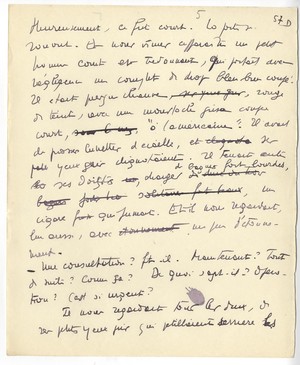 5
57 D
Heureusement, ce fut court. La porte
s'ouvrit. Et nous vîmes apparaître un petit
homme court et bedonnant, qui portait avec
négligence un complet de drap bleu bien coupé.
Il était presque chauve, rouge
de teint, avec une moustache grise coupée
court, "à l'américaine". Il avait
de grosses lunettes d'écaille, et
petits yeux gris clignotaient. Il tenait entre
ses doigts, chargés de bagues fort lourdes,
un
cigare qui fumait. Et il nous regardait,
lui aussi, avec un peu d'étonne-
ment.
- Une consultation ? fit-il. Maintenant ? Tout
de suite ? Comme ça ? De quoi s'agit-il ? Opéra-
tion ? C'est si urgent ?
Il nous regardait tous les deux, de
ses petits yeux gris qui pétillaient derrière les